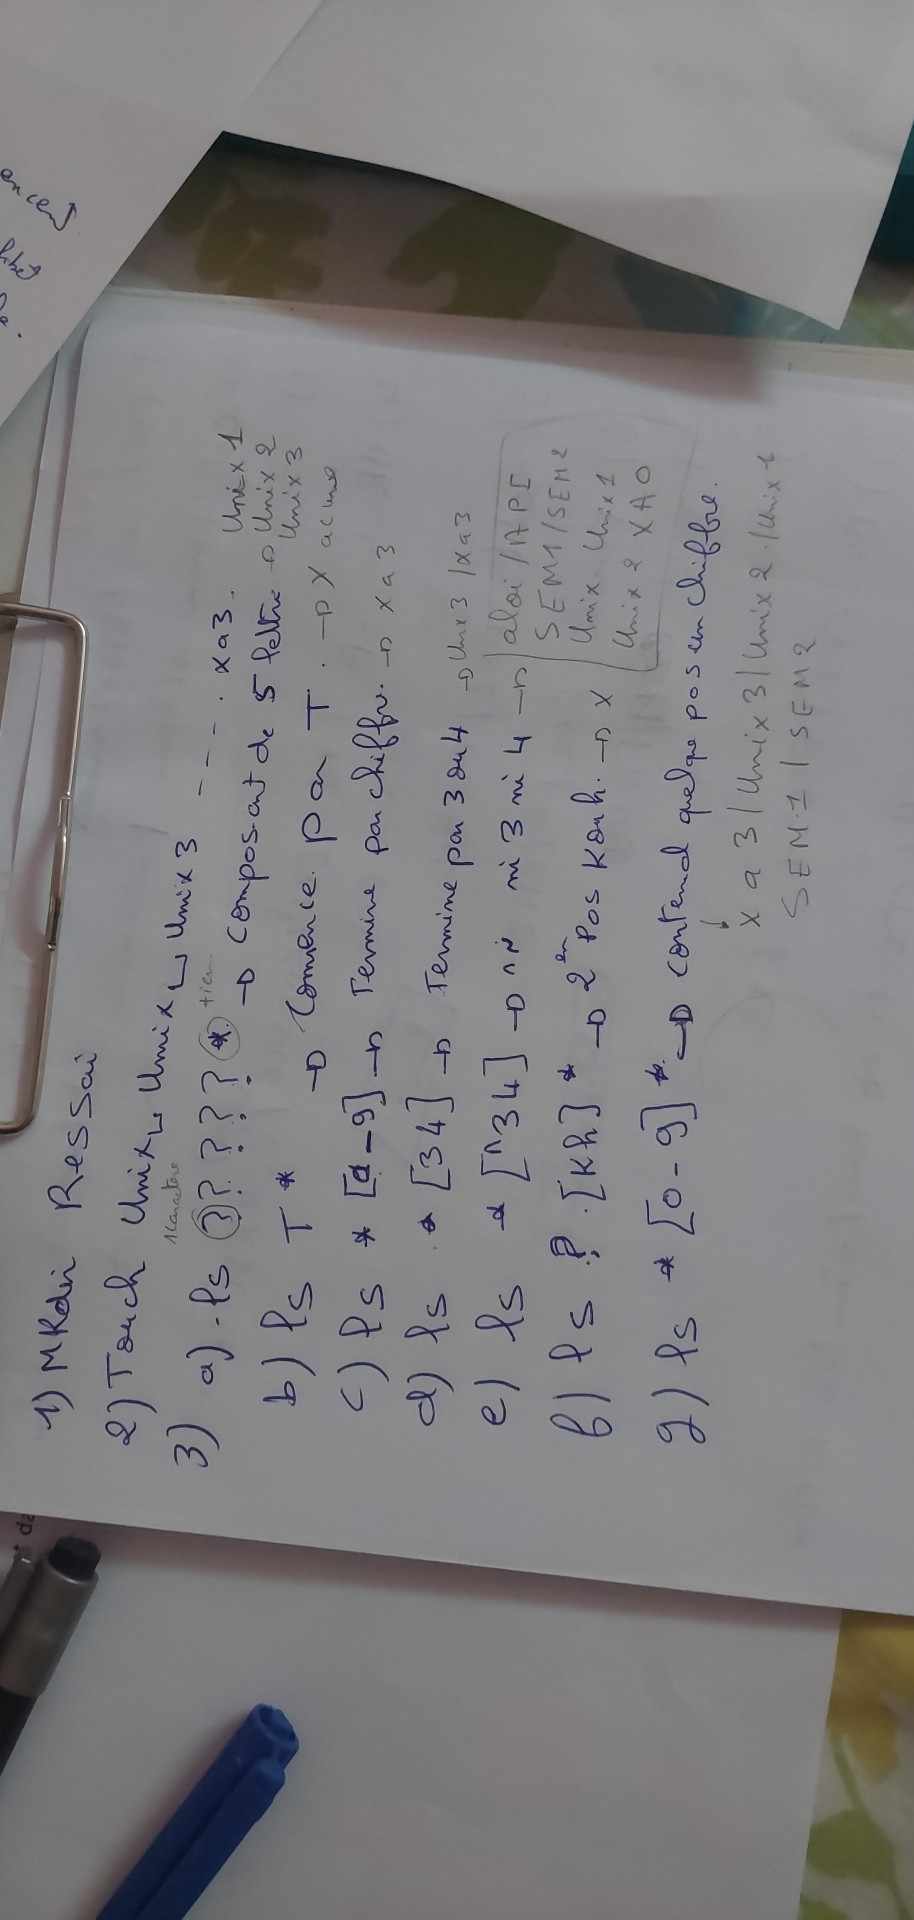 1) MKdir Ressai
2) Touch Unix␣ Unix␣ Unix3 ----. xa3.
1caractere
3) a) ls ?????* → composant de 5 lettre → Unix1
Unix2
Unix3
b) ls T* → Comence par T. → X acune
c) ls *[0-9] → Termine par chiffre. → xa3
d) ls *[34] → Termine par 3 ou 4 → Unix3 / xa3
e) ls *[^34] → ni 3 ni 4 → aloi / API
SEM1/SEM2
Unix Unix1
Unix2 XAO
f) ls ?[Kh]* → 2en Pos K ou h. → X
g) ls *[0-9]* → contend quelque pos un chiffre.
xa3 | Unix3 | Unix2 / Unix1
SEM1 | SEM2